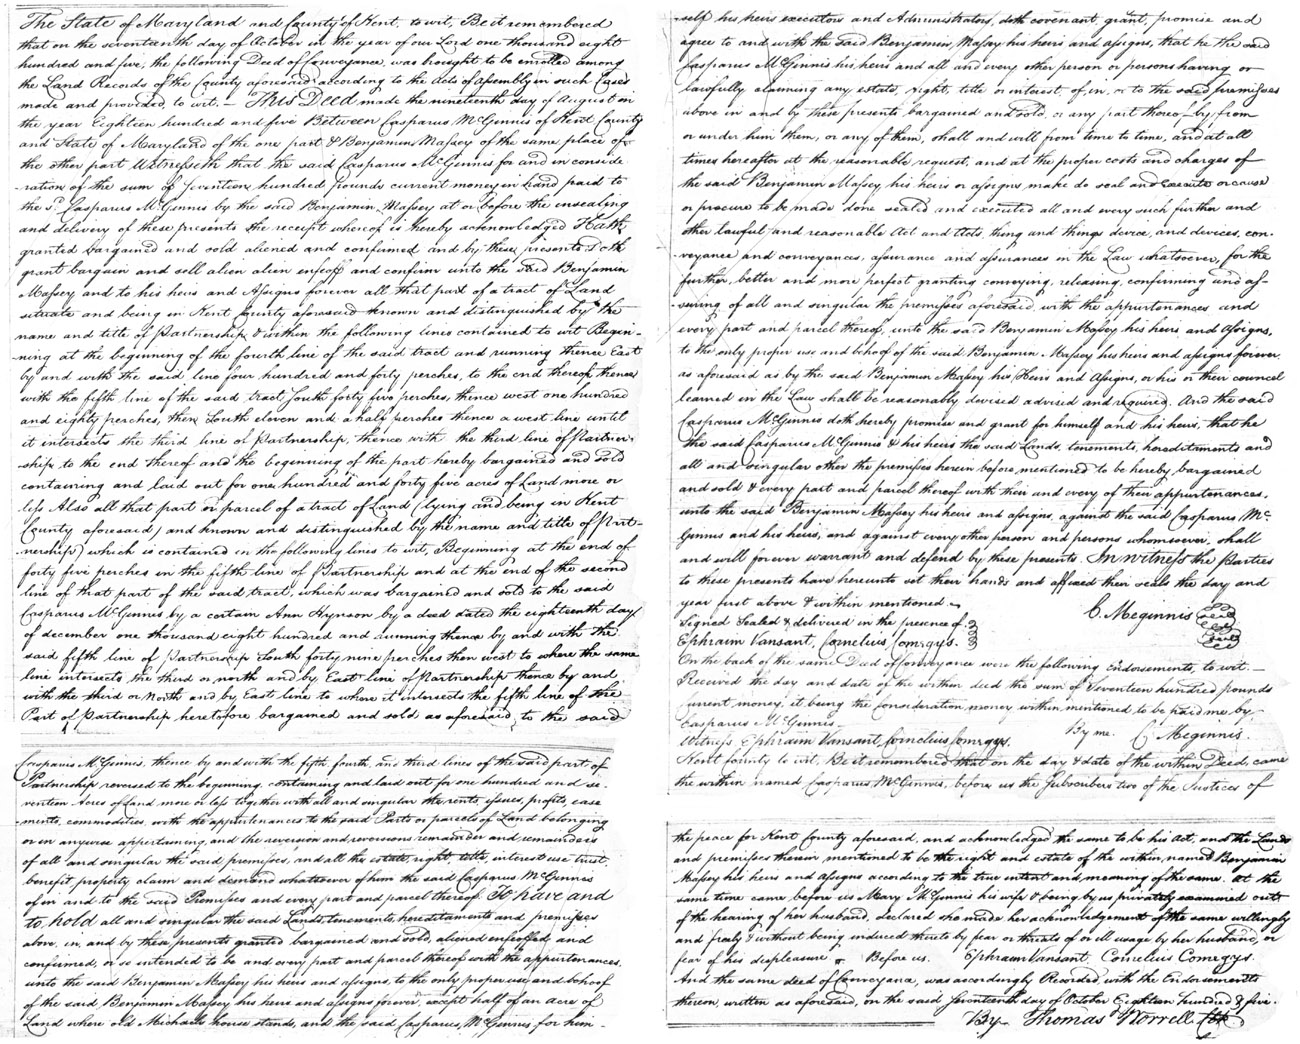 The State of Maryland and County of Kent, to wit, Be it remembered
that on the seventeenth day of October in the year of our Lord one thousand eight
hundred and five, the following Deed of Conveyance, was brought to be enrolled among
the Land Records of the County aforesaid according to the Acts of Assembly in such Cases
made and provided, to wit. — This Deed made the nineteenth day of August in
the year Eighteen hundred and five Between Casparus McGinnis of Kent County
and State of Maryland of the one part & Benjamin Massey of the same place of
the other part Witnesseth that the said Casparus McGinnis for and in conside
ration of the sum of Seventeen hundred pounds current money in hand paid to
the sd. Casparus McGinnis by the said Benjamin Massey at or before the ensealing
and delivery of these presents the receipt whereof is hereby acknowledged Hath
granted bargained and sold aliened and confirmed and by these presents Doth
grant bargain and sell alien alien enfeoff and confirm unto the said Benjamin
Massey and to his heirs and Assigns forever all that part of a tract of Land
situate and being in Kent County aforesaid known and distinguished by the
name and title of Partnership & within the following lines contained to wit Begin-
ning at the beginning of the fourth line of the said tract and running thence East
by and with the said line four hundred and forty perches, to the end thereof thence
with the fifth line of the said tract, South forty five perches, thence west one hundred
and eighty perches, then South eleven and a half perches thence a west line until
it intersects the third line of Partnership, thence with the third line of Partner-
ship to the end thereof and the beginning of the part hereby bargained and sold
containing and laid out for one hundred and forty five acres of Land more or
less Also all that part or parcel of a tract of Land (lying and being in Kent
County aforesaid) and known and distinguished by the name and title of Part-
nership) which is contained in the following lines to wit, Beginning at the end of
forty five perches in the fifth line of Partnership and at the end of the second
line of that part of the said tract, which was bargained and sold to the said
Casparus McGinnis by a certain Ann Hynson by a deed dated the eighteenth day
of december one thousand eight hundred and running thence by and with the
said fifth line of Partnership South forty nine perches then west to where the same
line intersects the third or north and by East line of Partnership thence by and
with the third or North and by East line to where it intersects the fifth line of the
Part of Partnership heretofore bargained and sold as aforesaid, to the said
Casparus McGinnis, thence by and with the fifth, fourth, and third lines of the said part of
Partnership reversed to the beginning, containing and laid out for one hundred and se-
venteen Acres of Land more or less together with all and singular the rents, issues, profits, ease
ments, commodities, with the appurtenances to the said Parts or parcels of Land belonging
or in anywise appertaining, and the reversion and reversions remainder and remainders
of all and singular the said premisses, and all the estate, right title, interest use trust,
benefit, property claim and demand whatsoever of him the said Casparus McGinnis
of in and to the said Premisses and every part and parcel thereof. To have and
to hold all and singular the said Lands, tenements, hereditaments and premisses
above, in, and by these presents granted bargained and sold, aliened enfeoffed and
confirmed, or so intended to be and every part and parcel thereof with the appurtenances,
unto the said Benjamin Massey his heirs and assigns, to the only proper use, and behoof
of the said Benjamin Massey his heirs and assigns forever, except half of an acre of
Land where old Michaels house stands, and the said Casparus, McGinnis for him-
self his heirs executors and Administrators, doth covenant, grant, promise and
agree to and with the said Benjamin Massey his heirs and assigns, that he the said
Casparus McGinnis his heirs and all and every other person or persons having or
lawfully claiming any estate, right, title or interest, of, in, or to the said premisses
above in and by these presents bargained and sold, or any part thereof by, from
or under him them, or any of them, shall and will from time to time, and at all
times hereafter at the reasonable request, and at the proper costs and charges of
the said Benjamin Massey, his heirs or assigns make do seal and execute or cause
or procure to be made done sealed and executed all and every such further and
other lawful and reasonable Act and Acts, thing and things devise, and devices, con-
veyance and conveyances, assurance and assurances in the Law whatsoever, for the
further, better and more perfect granting conveying, releasing, confirming and as-
suring of all and singular the premisses aforesaid, with the appurtenances and
every part and parcel thereof, unto the said Benjamin Massey his heirs and Assigns,
to the only proper use and behoof of the said Benjamin Massey his heirs and assigns forever
as aforesaid as by the said Benjamin Massey, his Heirs and Assigns, or his or their council
learned in the Law shall be reasonably devised advised and required. And the said
Casparus McGinnis doth hereby promise and grant for himself and his heirs, that he
the said Casparus McGinnis & his heirs the said Lands, tenements, hereditments and
all and singular other the premisses herein before mentioned to be hereby bargained
and sold & every part and parcel thereof with their and every of their appurtenances,
unto the said Benjamin Massey his heirs and assigns, against the said Casparus, Mc-
Ginnis and his heirs, and against every other person and persons whomsoever, shall
and will forever warrant and defend by these presents. In witness the Parties
to these presents have hereunto set their hands and affixed their seals the day and
year first above & within mentioned.
C. Meginnis Seal
Signed Sealed & delivered in the presence of
Ephraim Vansant, Cornelius Comegys.
On the back of the same Deed of Conveyance were the following endorsements, to wit. —
Received the day and date of the within deed the sum of Seventeen hundred pounds
current money, it being the consideration money within mentioned to be paid me by
Casparus McGinnis.
Witness Ephraim Vansant, Cornelius Comegys. By me. C Meginnis.
Kent County to wit. Be it remembered that on the day & date of the within Deed, came
the within named Casparus McGinnis, before us the Subscribers two of the Justices of
the peace for Kent County aforesaid, and acknowledged the same to be his Act, and the Lands
and premisses therein mentioned to be the right and estate of the within named Benjamin
Massey his heirs and assigns according to the true intent and meaning of the same. At the
same time came before us Mary McGinnis his wife & being by us privately examined out
of the hearing of her husband, declared she made her acknowledgement of the same willingly
and freely & without being induced thereto by fear or threats of or ill usage by her husband, or
fear of his displeasure Before us. Ephraim Vansant, Cornelius Comegys.
And the same deed of Conveyance, was accordingly Recorded, with the Endorsements
thereon, written as aforesaid, on the said Seventeenth day of October Eighteen hundred & five.
By Thomas Worrell Clk